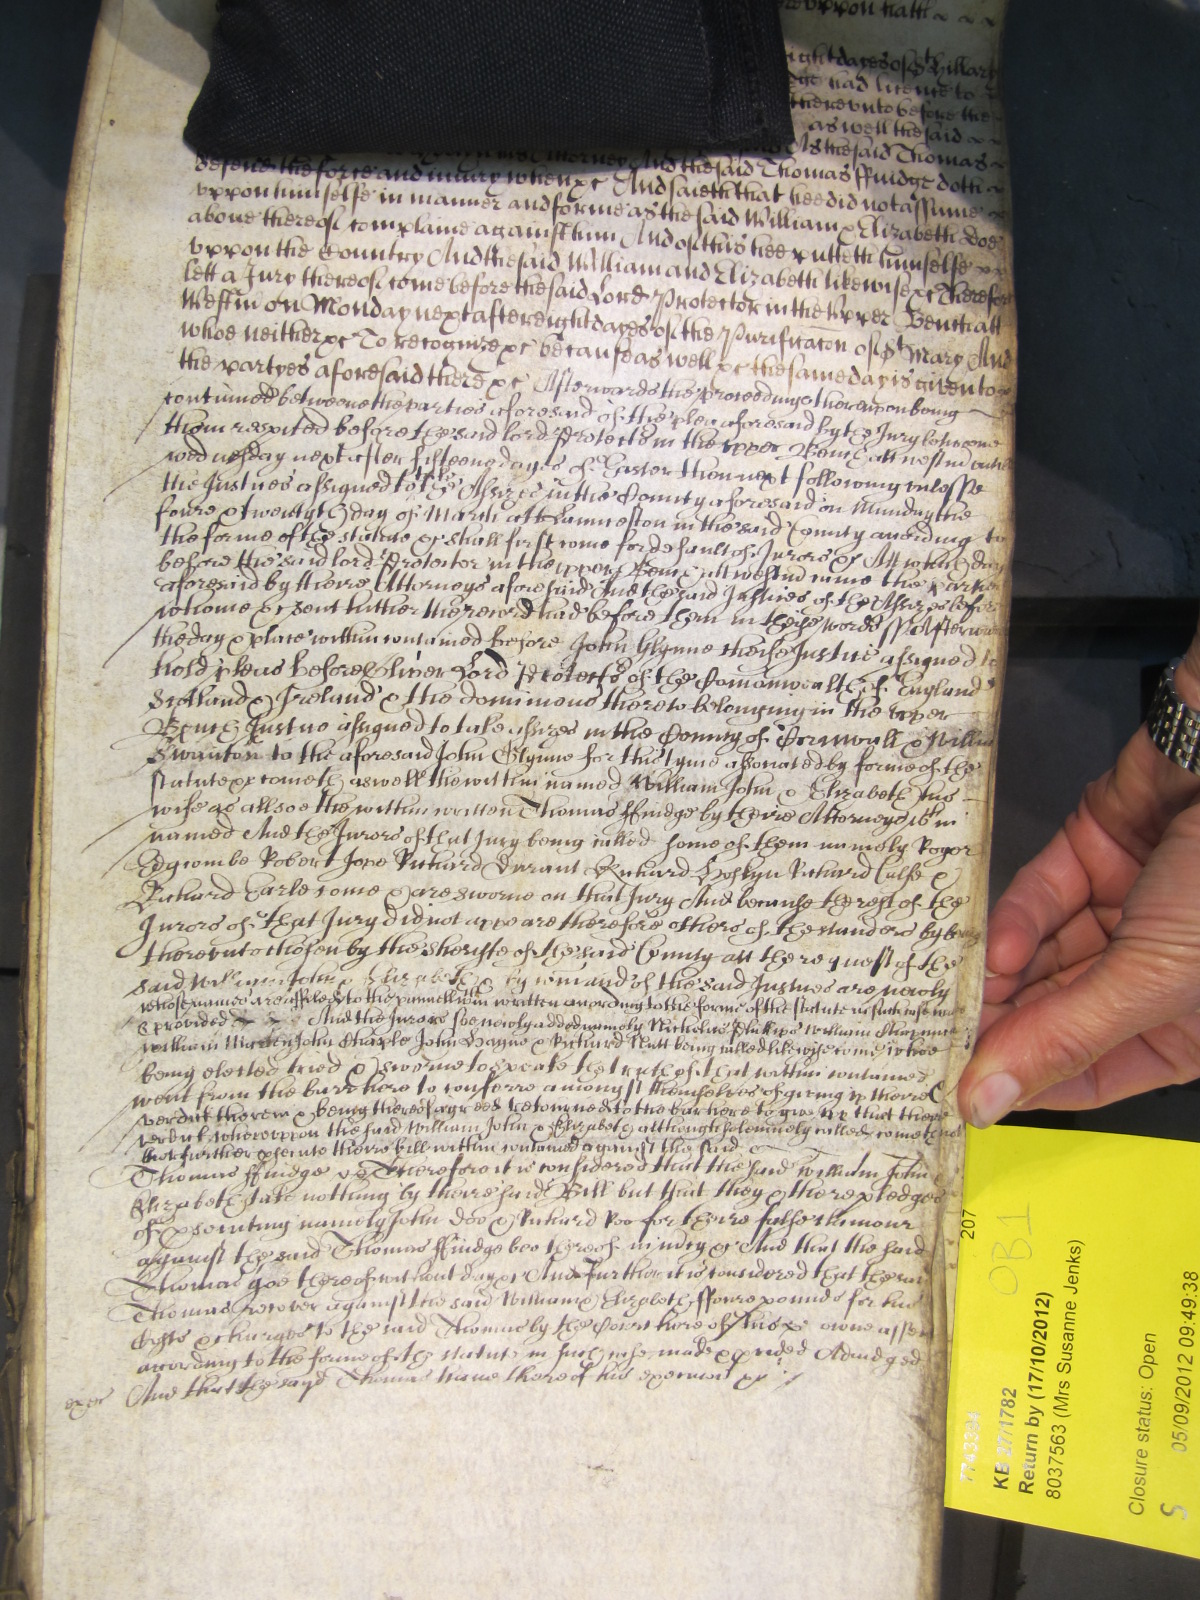 vppon itatt
eight dayes of St Hillary
had licence to
therevnto before the
as well the said
Attorney And the said Thomas
defend the force and iniury when &c And saieth that hee did not assume
vppon himselfe in manner and forme as the said William & Elizabeth doe
aboue thereof complaine against him And of this hee putteth himselfe
vppon the Country And the said William and Elizabeth likewise &c Therefore
lett a Jury thereof come before the said Lord Protector in the Vpper Bench att
Westm on Monday next after eight dayes of the Purificacon of St Mary And
whoe neither &c To recognize &c because as well &c the same day is given to
the partyes aforesaid there &c Afterwards the proceedings therevpon being
continued betweene the parties aforesaid of the plea aforesaid by the Jury betweene
them respited before the said lord Protector in the vpper Bench att Westm vntill
wednesday next after fifteene dayes of Easter then next following vnlesse
the Justices assigned to take Assizes in the County aforesaid on Munday the
foure & twentyth day of March att Lanceston in the said County according to
the forme of the statute &c shall first come for default of Jurors &c Att which day
before the said lord Protector in the vpper Bench att westm came the parties
aforesaid by theire Attorneys aforesaid And the said Justices of the Assizes before
whome &c sent hither the record had before them in these words ss Afterwards
the day & place within contained before John Glynne cheife Justice assigned to
hold pleas before Oliver Lord Protector of the Comonwealth of England
Scotland & Ireland & the dominions thereto belonging in the vpper
Bench Justice assigned to take assizes in the County of Cornwall & William
Swanton to the aforesaid John Glynne for this tyme associated by forme of the
statute &c cometh aswell the within named William John & Elizabeth his
wife as allsoe the within written Thomas ffuidge by theire Attorneys within
named And the Jurors of that Jury being called some of them namely Roger
Edgcombe Robert Jope Richard Durant Richard Richard &
Richard Earle come & are sworne on that Jury And because the rest of the
Jurors of that Jury did not appeare therefore others of the standers by being
therevnto chosen by the sheriffe of the said County att the request of the
said William John & Elizabeth & by comand of the said Justices are newly
whose names are affiled to the pannell within written according to the forme of the statute in such case made
& provided And the Jurors soe newly added namely Nicholas Phillips William
William John John & Richard being called likewise come whoe
being elected tried & sworne to speake the truth of that within contained
went from the barr here to conferre amongst themselves of giving vp theire
verdict therein & being thereof agreed retourned to the bar here to give vp that theire
verdict wherevppon the said William John & Elizabeth although solemnely called come not
nor further psecute theire bill within contained against the said
Thomas ffuidge &c Therefore it is considered that the said William John &
Elizabeth take nothing by theire said Bill but that they & there pledges
of psecuting namely John Doo & Richard Roo for theire false clamour
against the said Thomas ffuidge bee thereof in mercy &c And that the said
Thomas goe thereof without day &c And further it is considered that the said
Thomas recover against the said William & Elizabeth ffoure pounds for his
Costs & charges to the said Thomas by the Court here of his owne assent
according to the forme of the statute in such case made & pvided Adiudged
And that the sayd Thomas haue thereof his execucion &c
207
OB1
KB 27/1782
Return by (17/10/2012)
8037563 (Mrs Susanne Jenks)
Closure status: Open
S 05/09/2012 09:49:38